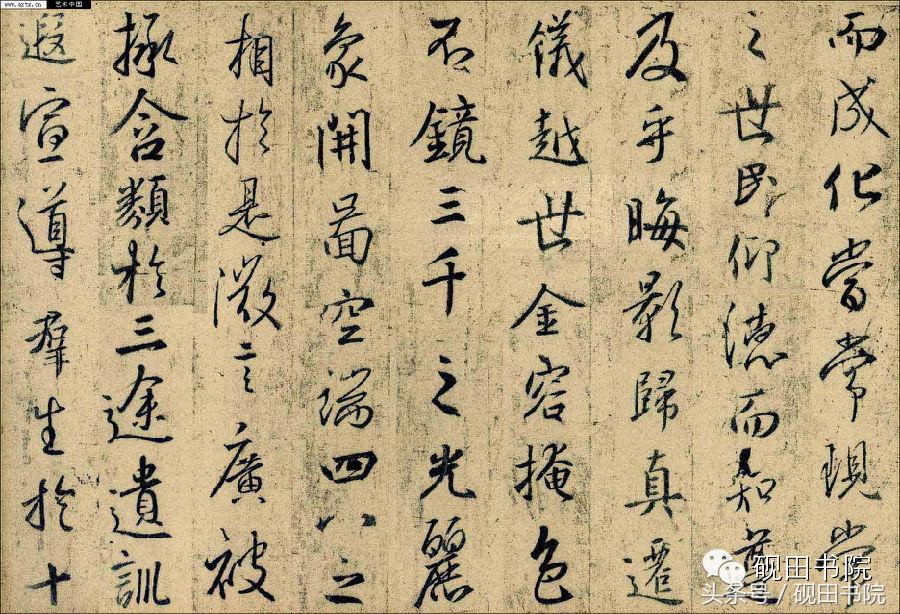 www.artx.cn 艺术中国
而成化當常現常
之世民仰德而知遵
及乎晦影歸真遷
儀越世金容掩色
不鏡三千之光麗
象開圖空端四八之
相於是微言廣被
拯含類於三途遺訓
遐宣導羣生於十
砚田书院
头条号 / 砚田书院